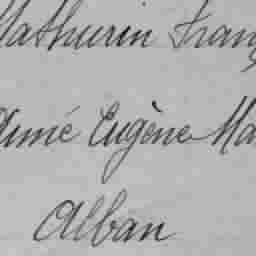 Mathurin Franç
Aimé Eugène Ma
Alban